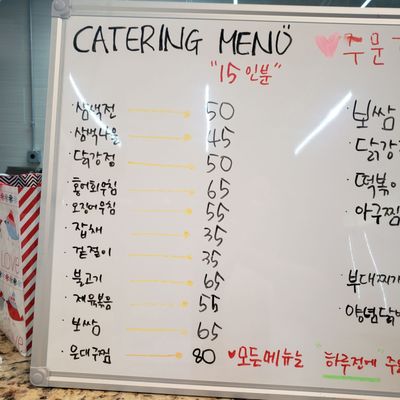 CATERING MENU
"15인분"
·삼색전 → 50
·삼색나물 → 45
·닭강정 → 50
·홍어회무침 → 65
·오징어무침 → 55
·잡채 → 35
·겉절이 → 35
·불고기 → 65
·제육볶음 → 55
·보쌈 → 65
·은대구찜 → 80
♥모든메뉴는 "하루전에" 주
♥주문
·보쌈
·닭강
·떡볶이
·아구찜
·부대찌개
·양념닭
LOVE